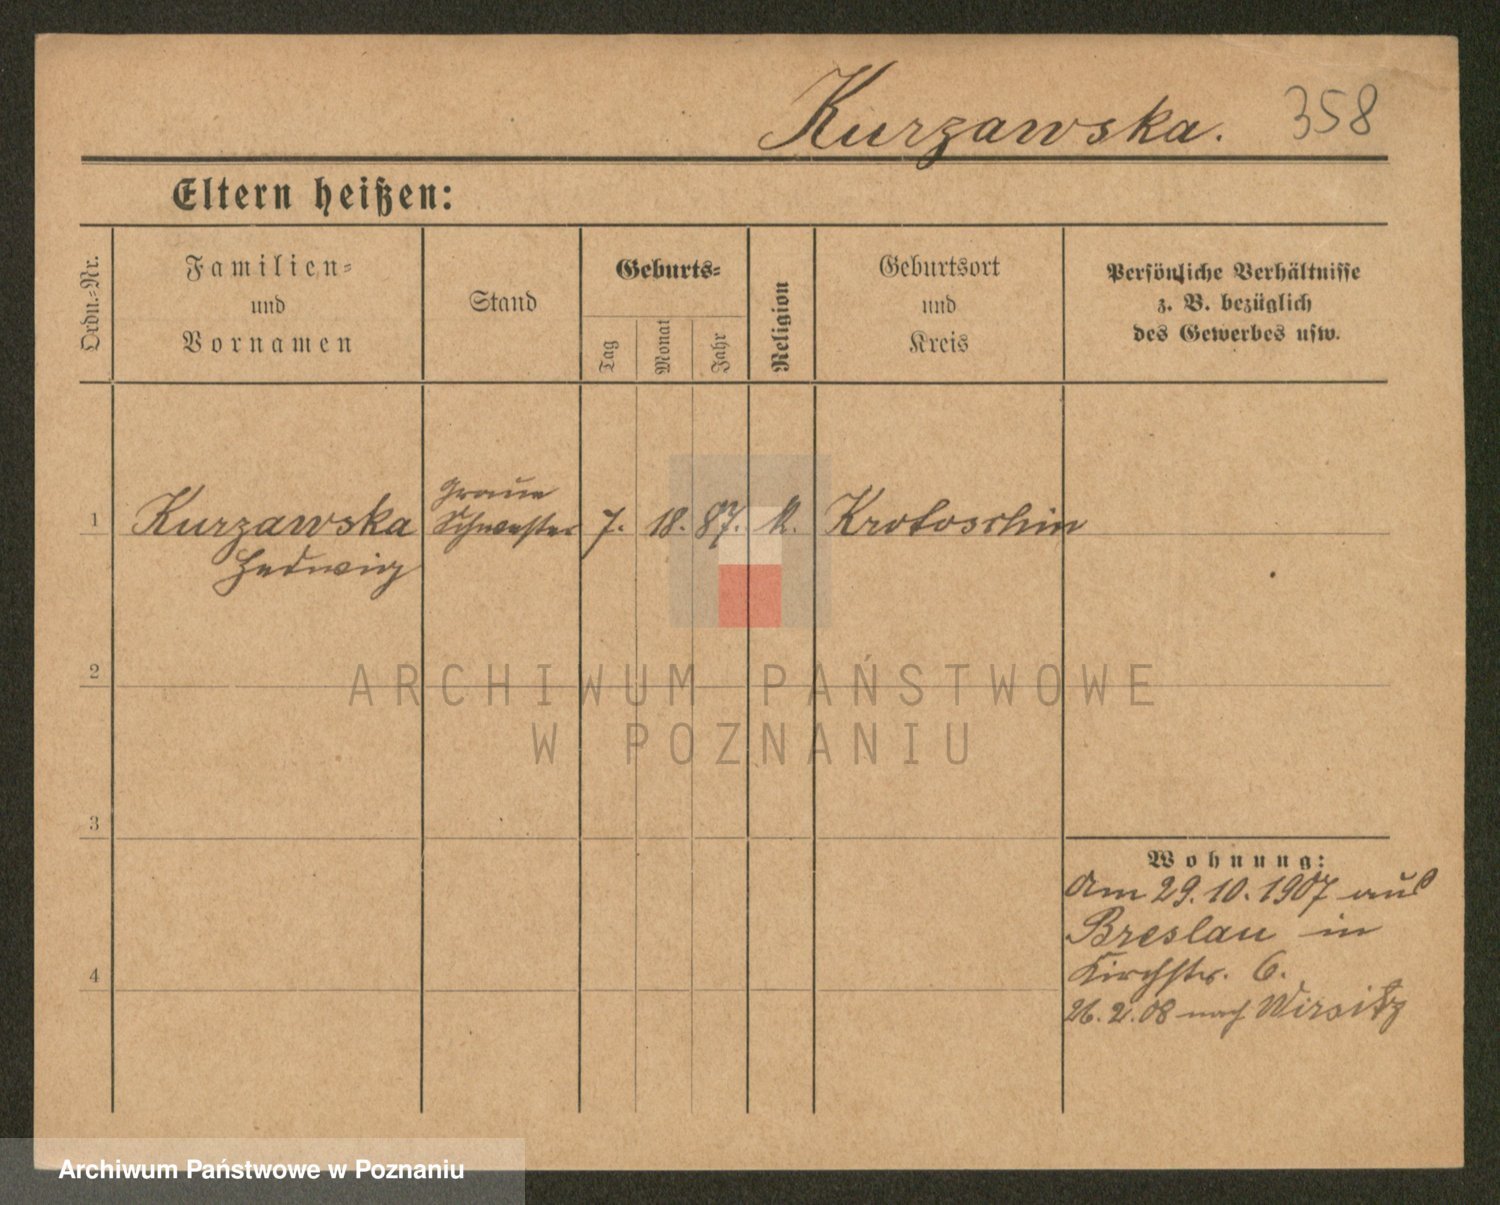 Kurzawska. 358
Eltern heißen:
Ordn.-Nr.
Familien-
und
Vornamen
Stand
Geburts-
Tag
Monat
Jahr
Religion
Geburtsort
und
Kreis
Persönliche Verhältnisse
z. B. bezüglich
des Gewerbes usw.
1 Kurzawska
Hedwig
graue
Schwester
7. 18. 87. K. Krotoschin
2
ARCHIWUM PAŃSTWOWE
W POZNANIU
3
Wohnung:
Am 29.10.1907 aus
Breslau in
Kirchstr. 6.
4
26.2.08 nach Wirsitz
Archiwum Państwowe w Poznaniu